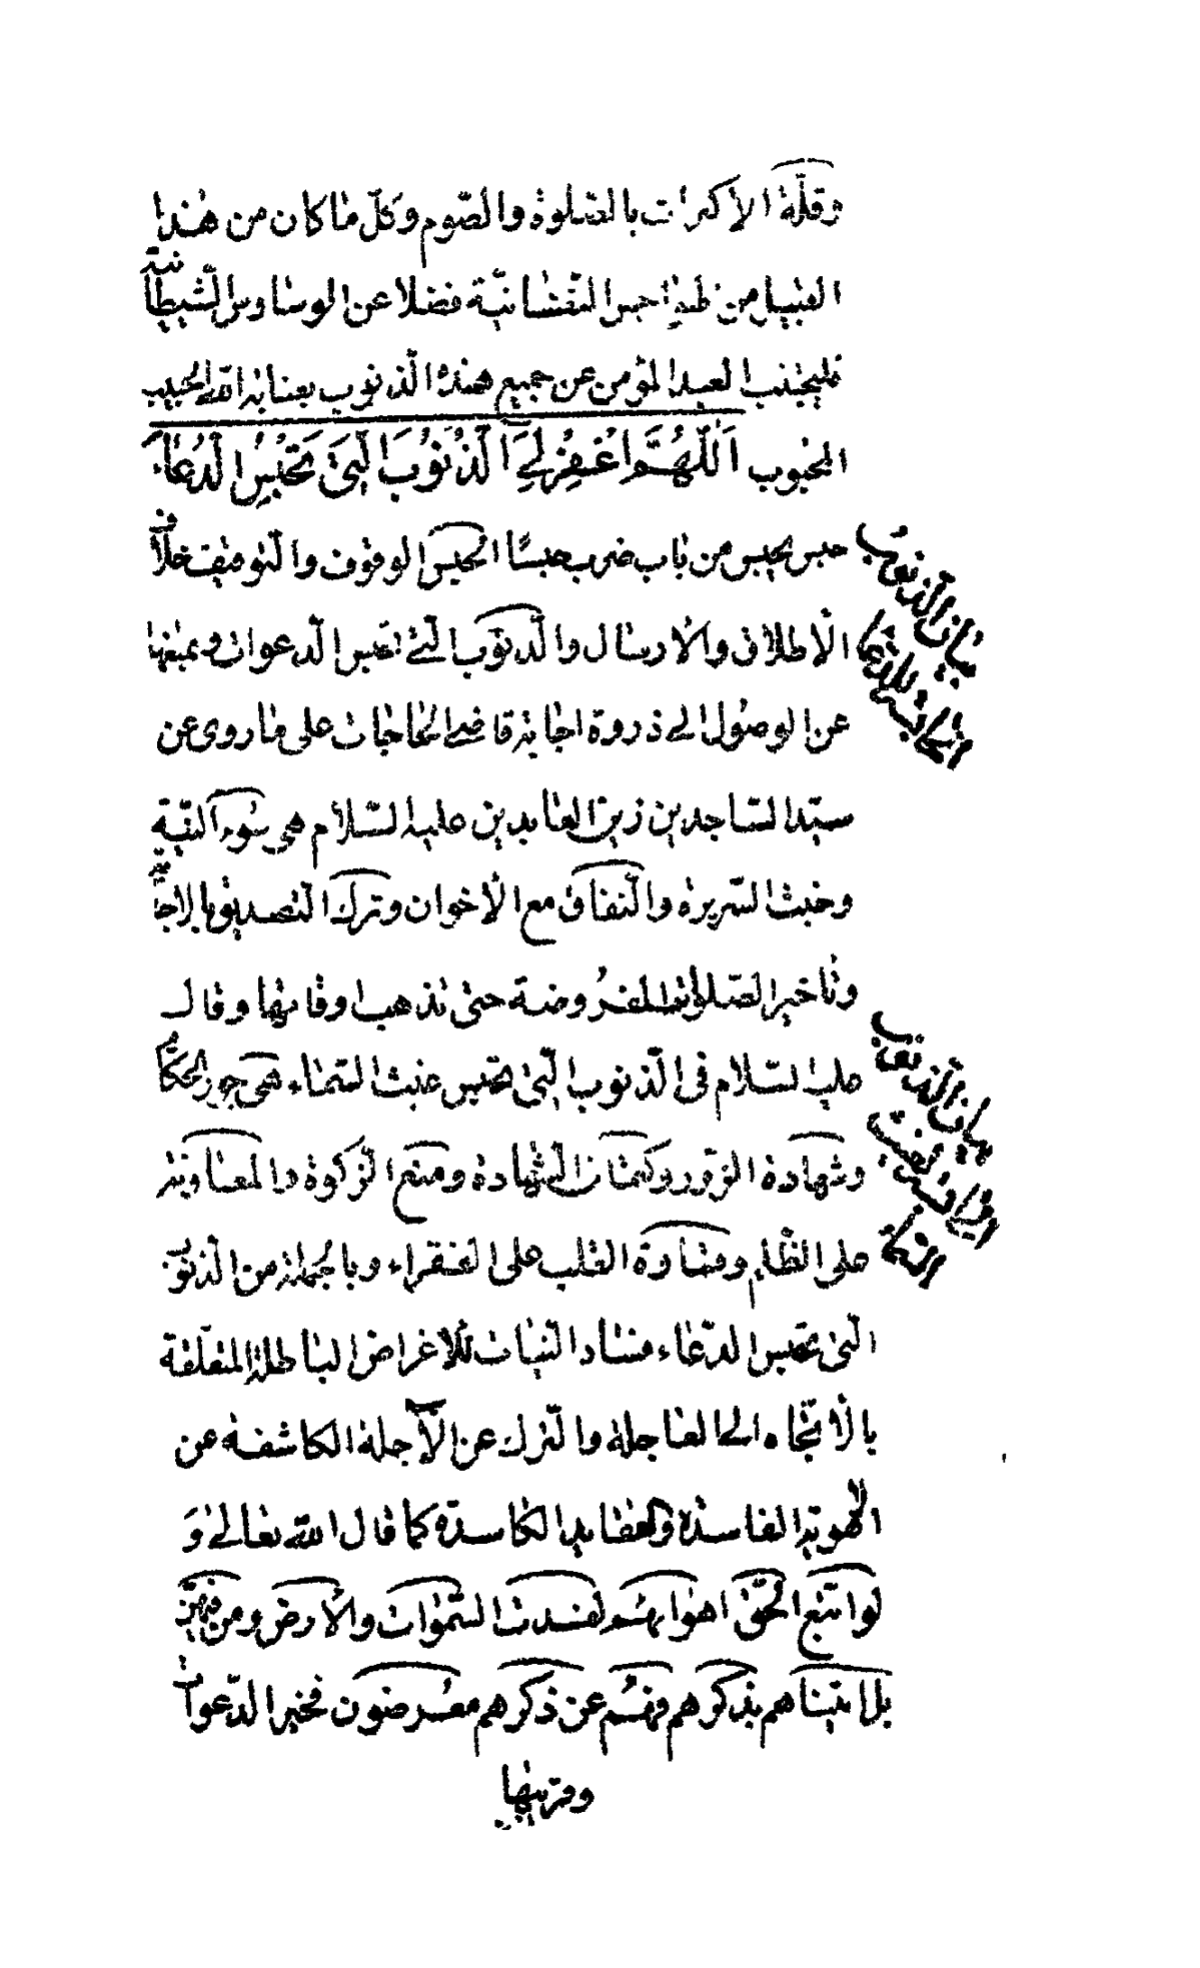 وقلّة الاكتراث بالصّلوة والصّوم وكلّ ما كان من هذا
القبيل من الهواجس النّفسانيّة فضلا عن الوساوس الشّيطانية
فليجتنب العبد المؤمن عن جميع هذه الذّنوب بعناية الله الحبيب
المحبوب اَللّٰهُمَّ اغْفِرْ لِيَ الذُّنُوبَ الَّتِي تَحْبِسُ الدُّعَاءَ
حبس يحبس من باب ضرب حبسًا الحبس الوقوف والتّوقيف خلاف
الاطلاق والارسال والذّنوب الّتي تحبس الدعوات ويمنعها
عن الوصول الى ذروة اجابة قاضي الحاجات على ما روى عن
سيّد السّاجدين زين العابدين عليه السّلام هى سوء النّيّة
وخبث السّريرة والنّفاق مع الاخوان وترك التصديق بالاجابة
وتاخير الصّلوات المفروضة حتى تذهب اوقاتها وقال
عليه السّلام فى الذّنوب الّتى تحبس غيث السّماء هى جور الحكّام
وشهادة الزّور وكتمان الشّهادة ومنع الزّكوة والمعاونة
على الظّلم وقساوة القلب على الفقراء وبالجملة من الذّنوب
الّتى تحبس الدّعاء فساد النّيات للاغراض الباطلة المتعلّقة
بالاتّجاه الى العاجلة والتّرك عن الآجلة الكاشفة عن
الاهوية الفاسدة والعقايد الكاسدة كما قال الله تعالى وَ
لو اتّبع الحقّ اهوائهم لفسدت السّموات والارض ومن فيهنّ
بل اتيناهم بذكرهم فهم عن ذكرهم معرضون فخير الدّعوات
وقربتها
بيان الذّنوب
الحابسة للدّعاء
بيان الذّنوب
السّماء